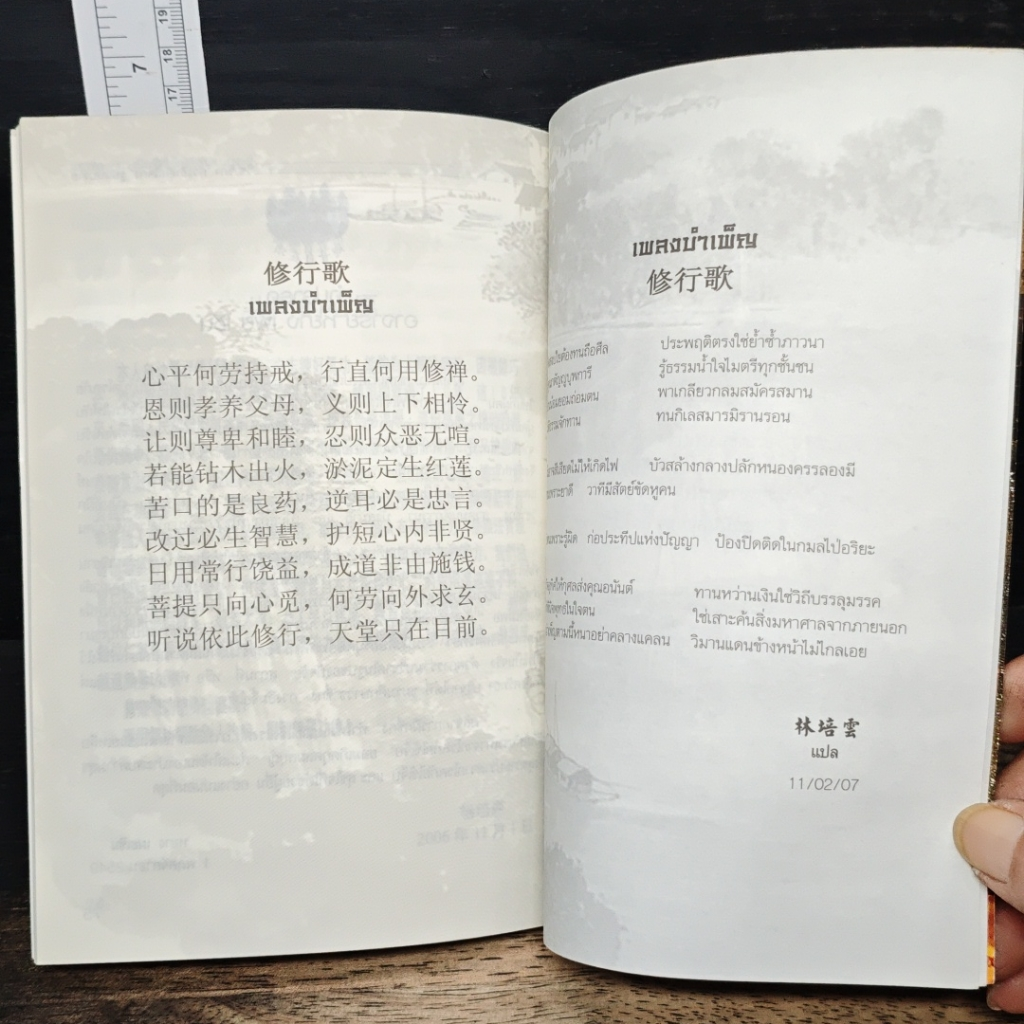 19
18
17
7
修行歌
เพลงบำเพ็ญ
心平何劳持戒，行直何用修禅。
恩则孝养父母，义则上下相怜。
让则尊卑和睦，忍则众恶无喧。
若能钻木出火，淤泥定生红莲。
苦口的是良药，逆耳必是忠言。
改过必生智慧，护短心内非贤。
日用常行饶益，成道非由施钱。
菩提只向心觅，何劳向外求玄。
听说依此修行，天堂只在目前。
เพลงบำเพ็ญ
修行歌
ประพฤติตรงใช่ย้ำซ้ำภาวนา
รู้ธรรมน้ำใจไมตรีทุกชั้นชน
พาเกลียวกลมสมัครสมาน
ทนกิเลสมารมิรานรอน
บัวสล้างกลางปลักหนองครรลองมี
วาทีมีสัตย์ขัดหูคน
ก่อประทีปแห่งปัญญา ป้องปิดติดในกมลไป่อริยะ
ทานหว่านเงินใช่วิถีบรรลุมรรค
ใช่เสาะค้นสิ่งมหาศาลจากภายนอก
วิมานแดนข้างหน้าไม่ไกลเอย
林培雲
แปล
11/02/07